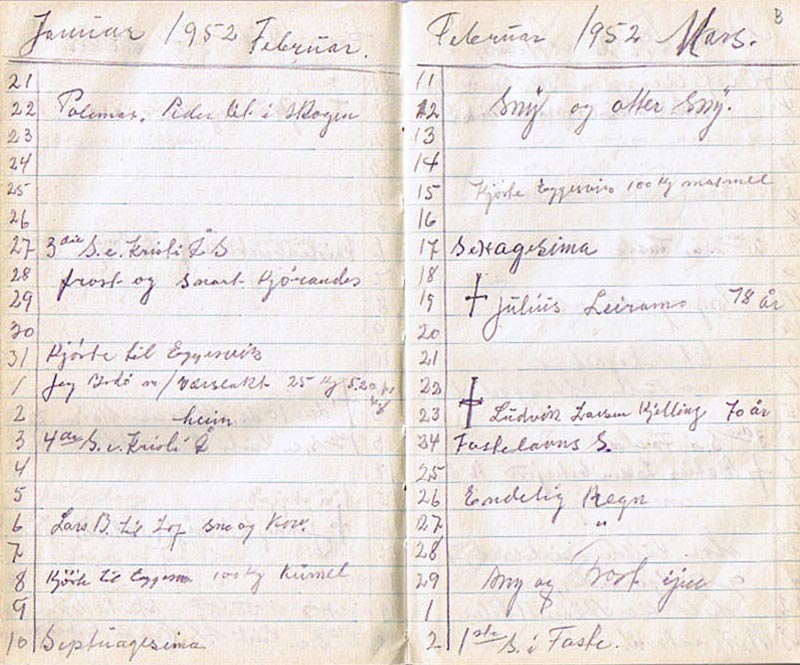 Januar 1952 Februar.
21
22 Palemar. Peder til i skogen
23
24
25
26
27 3die S. e. Kristi Å S
28 frost og snart kjörandes
29
30
31 Kjörte til Eggesvik
1 Jeg Bodö m/ 25 kg 5.20 pr kg
2 heim
3 4de S. e. Kristi Å
4
5
6 Lars B. til Lof. sne og Kov.
7
8 Kjörte til 100 kg
9
10 Septuagesima
Februar 1952 Mars. 3
11
12 Sny og atter Sny.
13
14
15 Kjörte Eggesvik 100 kg
16
17 Sexagesima
18
19 † Julius Leiramo 78 år
20
21
22
23 † Ludvik Larsen Kjelling 70 år
24 Fastelavns S.
25
26 Endelig Regn
27 "
28
29 Sny og Frost igjen
1
2 1ste S. i Faste.